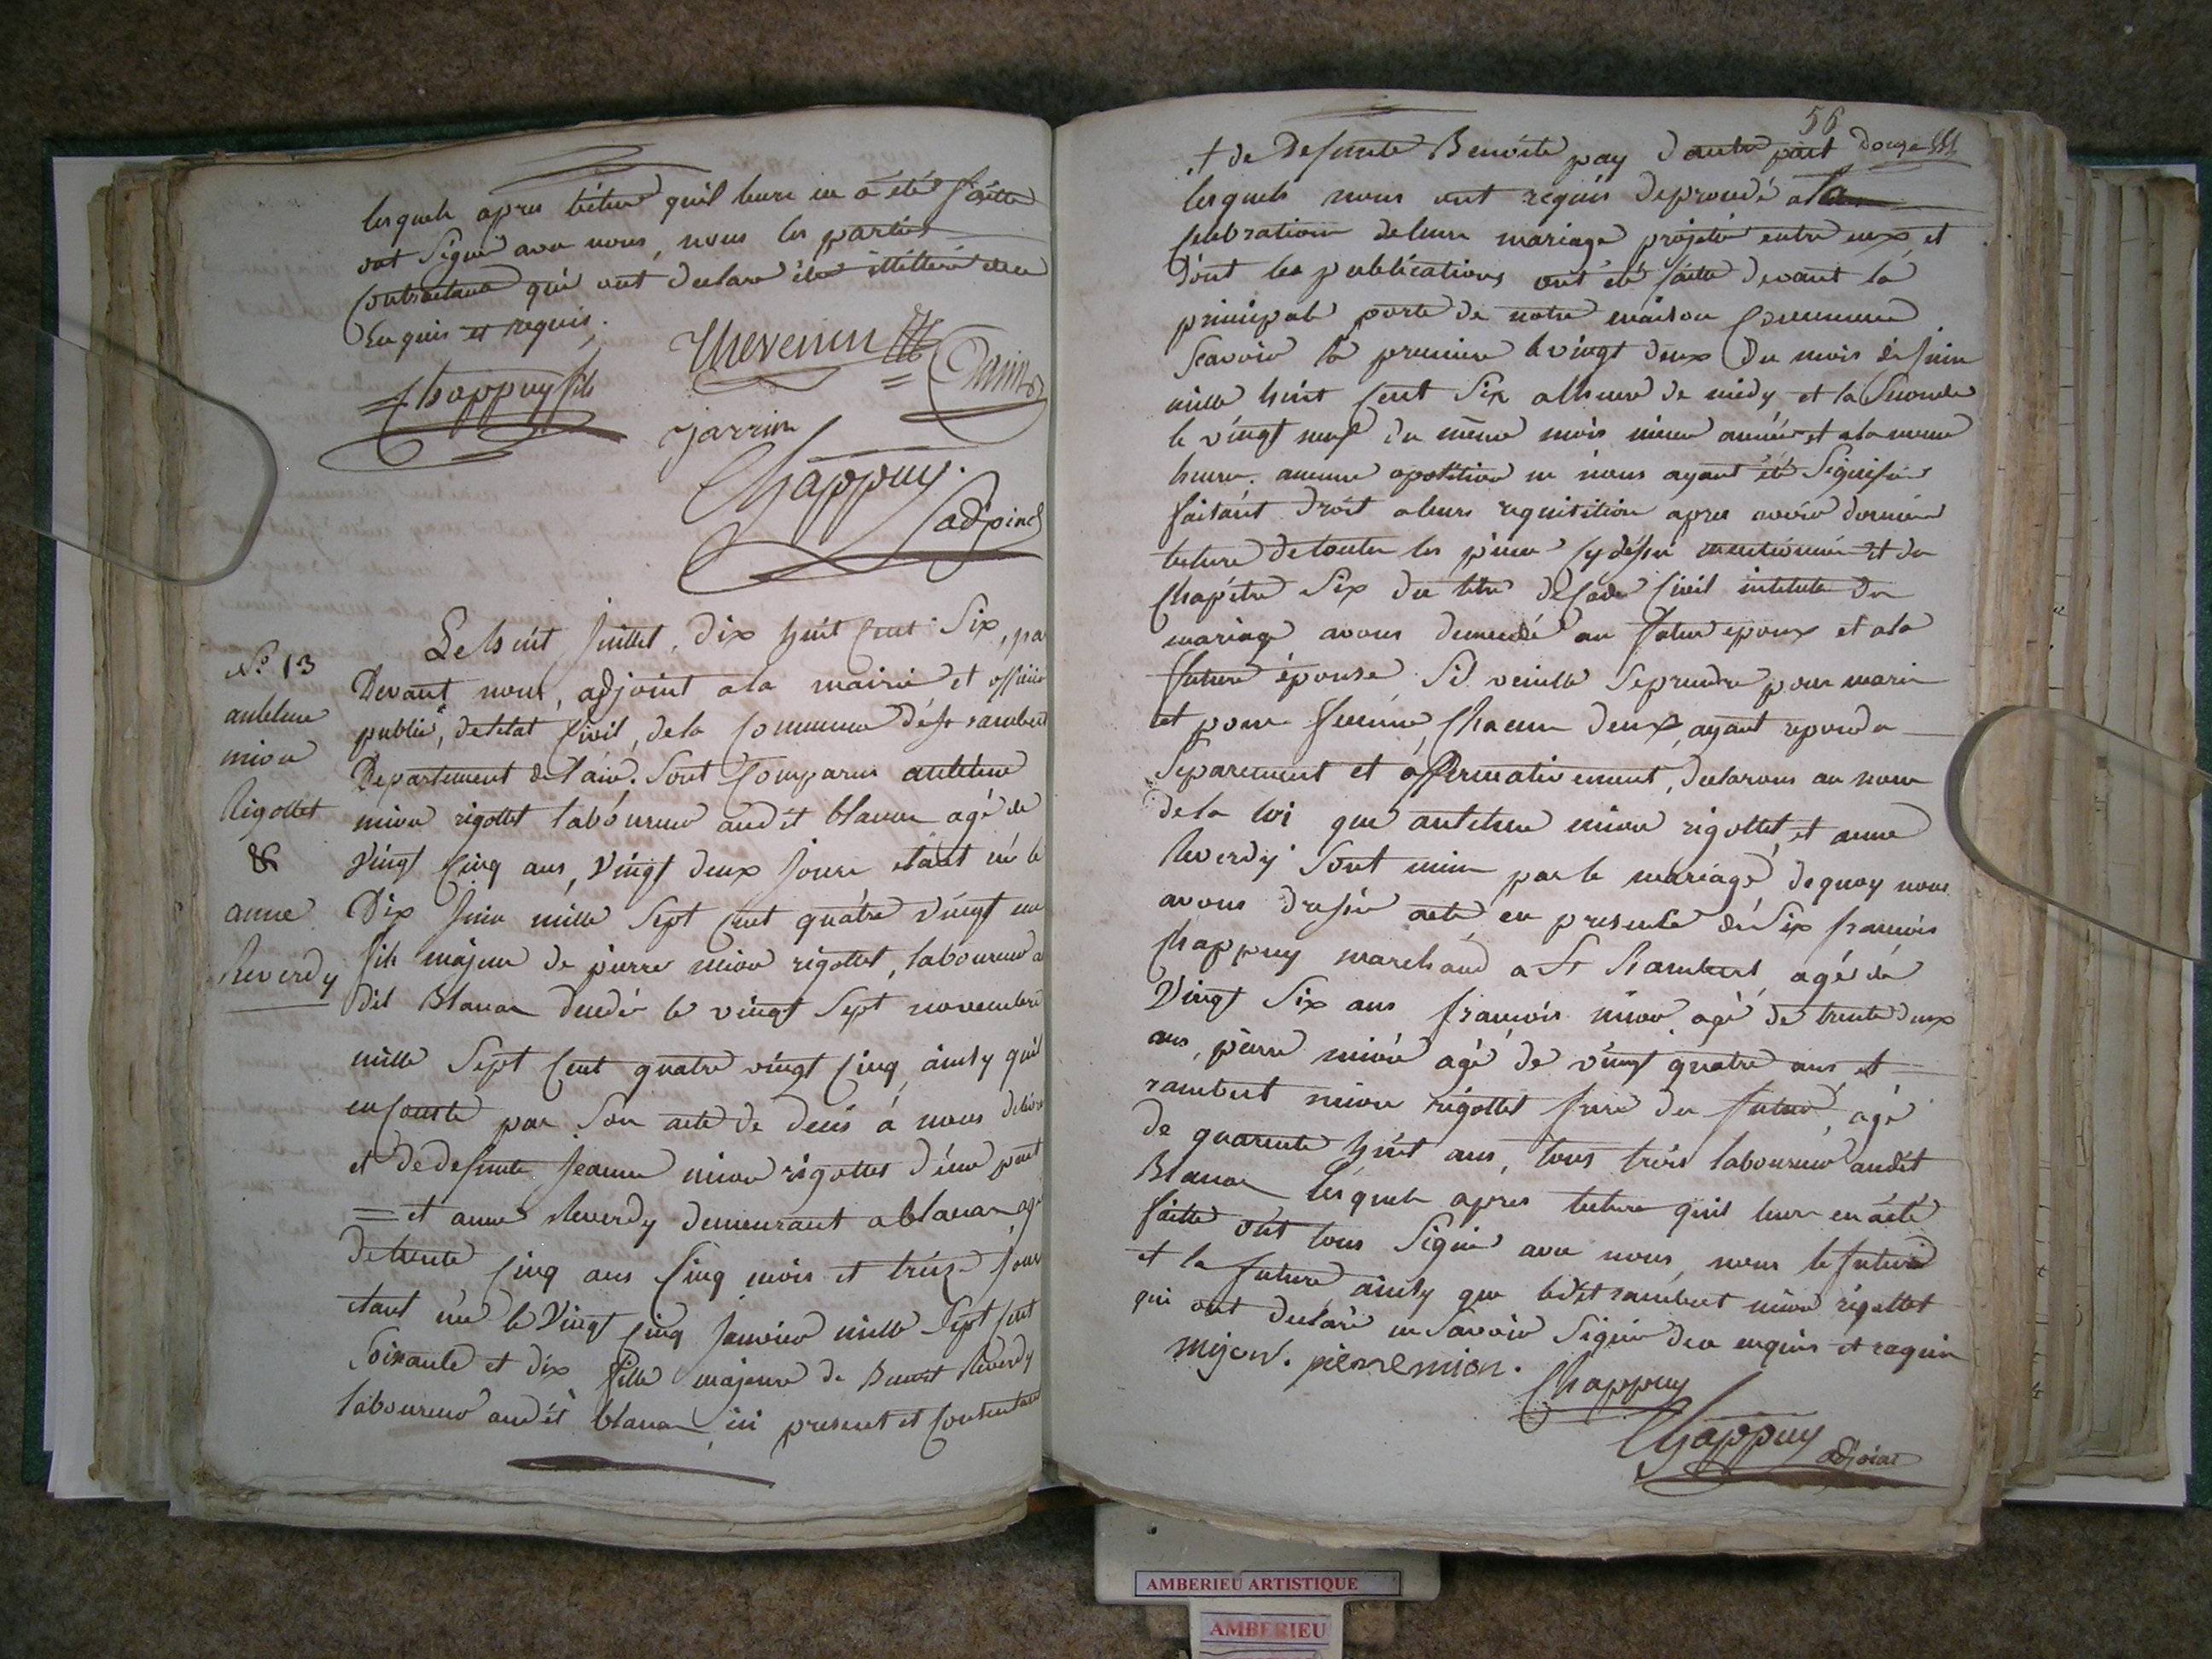 lesquels apres lecture quil leure en a été faitte
ont Signé avec nous, nous les parties
Contractant qui ont declaré être illitteré dece
Enquis et requis.
Chappuy fils
Thevenin
Janin
jarrin
Chappuy.
adjoinct
N° 13
antelme
mion
Rigottet
&
anne
Reverdy
Le huit Juillet, dix huit Cent Six, pa
Devant nous, adjoint a la mairie et officier
public, detetat Civil, dela Commune de st rambert
Departement de l'ain. Sont Comparus antelme
mion rigottet laboureur audit blanaz agé de
Vingt Cinq ans, Vingt deux Jours etant né le
Dix Juin mille Sept Cent quatre vingt un
fils majeur de pierre mion rigottet, laboureur a
dit Blanaz decedé le vingt Sept novembre
mille Sept Cent quatre vingt Cinq, ainsy quil
en Conste par Son acte de deces a nous delivré
et de defunte Jeanne mion rigottet d'une part
= et anne Reverdy demeurant a blanaz agé
de trente Cinq ans Cinq mois et treize Jours
etant née le Vingt Cinq Janvier mille Sept Cent
Soixante et dix fille majeure de Benoit Reverdy
laboureur audit blanaz, ici present et Consentant
56
+ de Defunte Benoite pay d'autre part douze
lesquels nous ont requis deprocedé a la
Celebration de leure mariage projetté entre eux, et
dont les publications ont été faitte devant la
principale porte de notre maison Commune
Scavoir la premiere le vingt deux du mois de Juin
mille huit Cent Six alheure de midy et la Seconde
le vingt neuf du même mois même année et a la meme
heure. aucune opotition ne nous ayant été Signifiée
faitant droit a leurs requitition apres avoir donnée
lecture de toutes les pieces Cy dessu mentionnée et du
Chapitre Six du titre de Code Civil intitulé du
mariage avons demendé au futur epoux et a la
future épouse Sil veulle Seprendre pour mari
et pour femme, Chacun deux, ayant repondu
Separement et affirmativement, declarons au nom
de la loi que antelme mion rigottet, et anne
Reverdy Sont unis par le mariage, dequoy nous
avons dressé acte, en presence de Six francois
Chappuy marchand a St Rambert, agé de
Vingt Six ans francois mion agé de trente deux
ans, pierre mion agé de vingt quatre ans, et
rambert mion rigottet frere du futur, agé
de quarente huit ans, tous trois laboureur audit
Blanaz, lesquels apres lecture quil leur en a été
faitte ont tous Signé avec nous, nous le futur
et la future, ainsy que ledit rambert mion rigottet
qui ont declaré ne Savoir Signer dece enquis et requis
mijon. pierre mion.
Chappuy
Chappuy
adjoint
AMBERIEU ARTISTIQUE
AMBERIEU